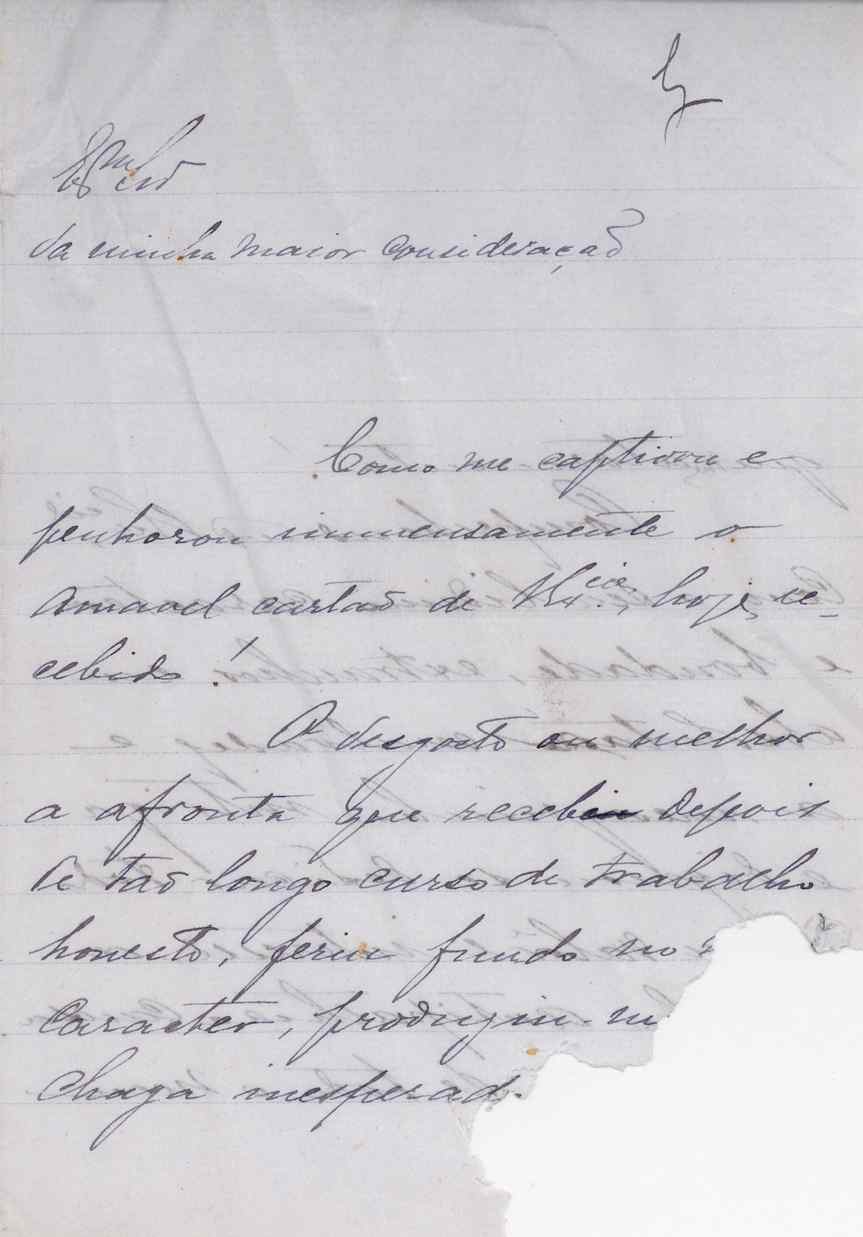 Exmo Snr
da minha maior consideração
Como me captivou e
penhorou immensamente o
amavel cartão de V. Excia, hoje re-
cebido!
O desgosto ou melhor
a afronta que recebi depois
de tão longo curso de trabalho
honesto, feriu fundo no
caracter, produziu-m
chaga inesperad